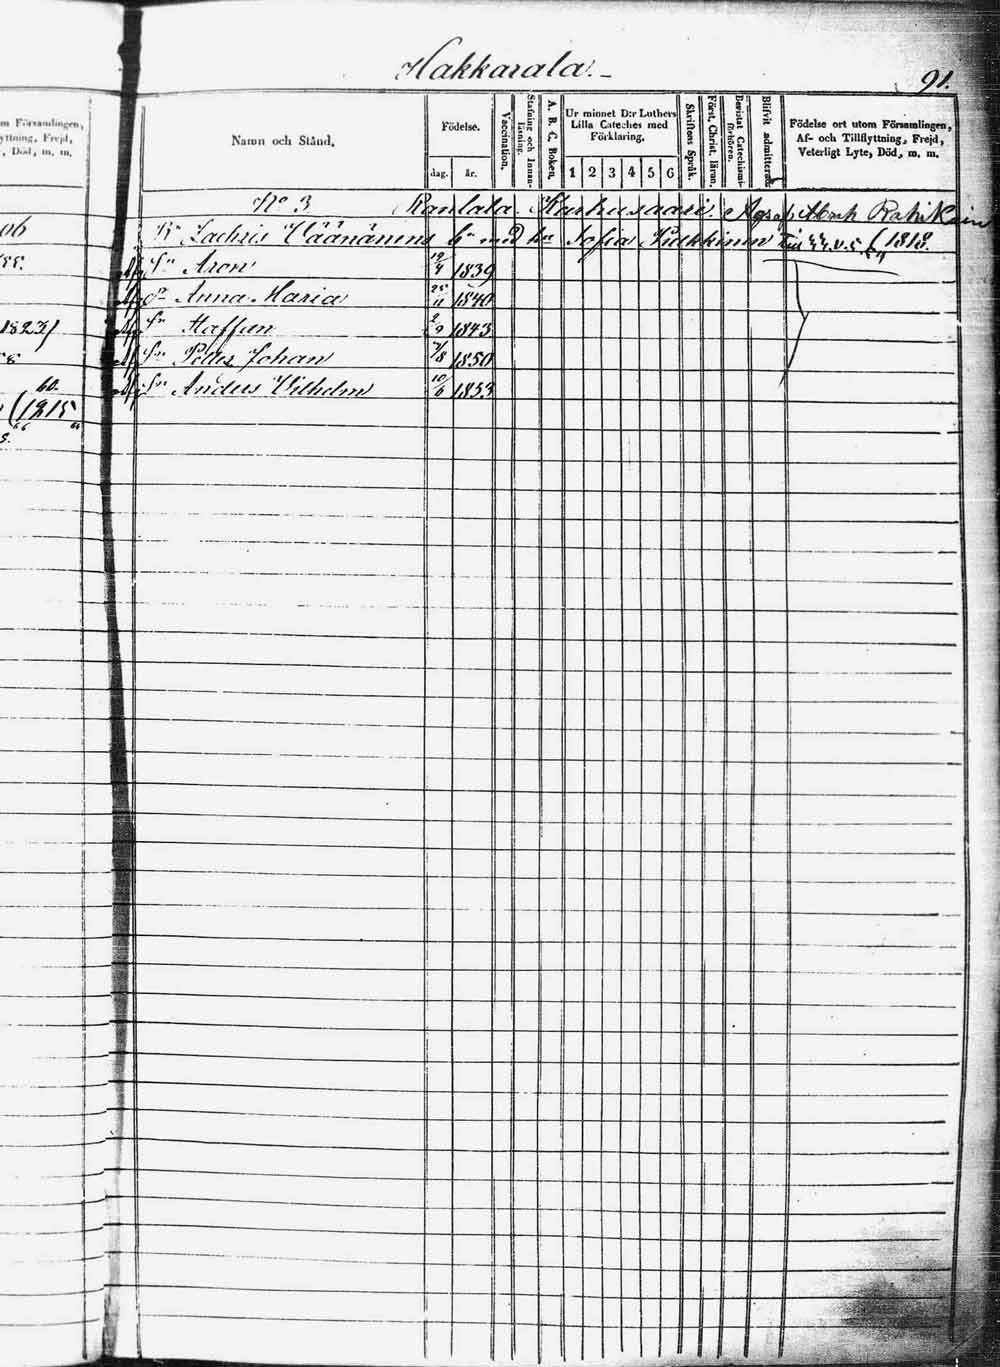 Hakkarala.
91.
m Församlingen,
yttning, Frejd,
, Död, m. m.
Namn och Stånd.
Födelse.
dag. år.
Vaccination.
Stafning och Innan-läsning.
A. B. C. Boken.
Ur minnet D:r Luthers
Lilla Cateches med
Förklaring.
1 2 3 4 5 6
Skriftens Språk.
Först. Christ. lärun.
Bevistat Catechismi-förhören.
Blifvit admitterad
Födelse ort utom Församlingen,
Af- och Tillflyttning, Frejd,
Veterligt Lyte, Död, m. m.
No 3 Rantala Karhusaari.
Zachris Väänänens med Sofia (1818.
Sn Aron 19/4 1839
Dr Anna Maria 25/11 1840
Sn Staffan 2/9 1843
Sn Petter Johan 7/8 1850
Sn Anders Vilhelm 10/6 1853
06
1823/
60.
(1815